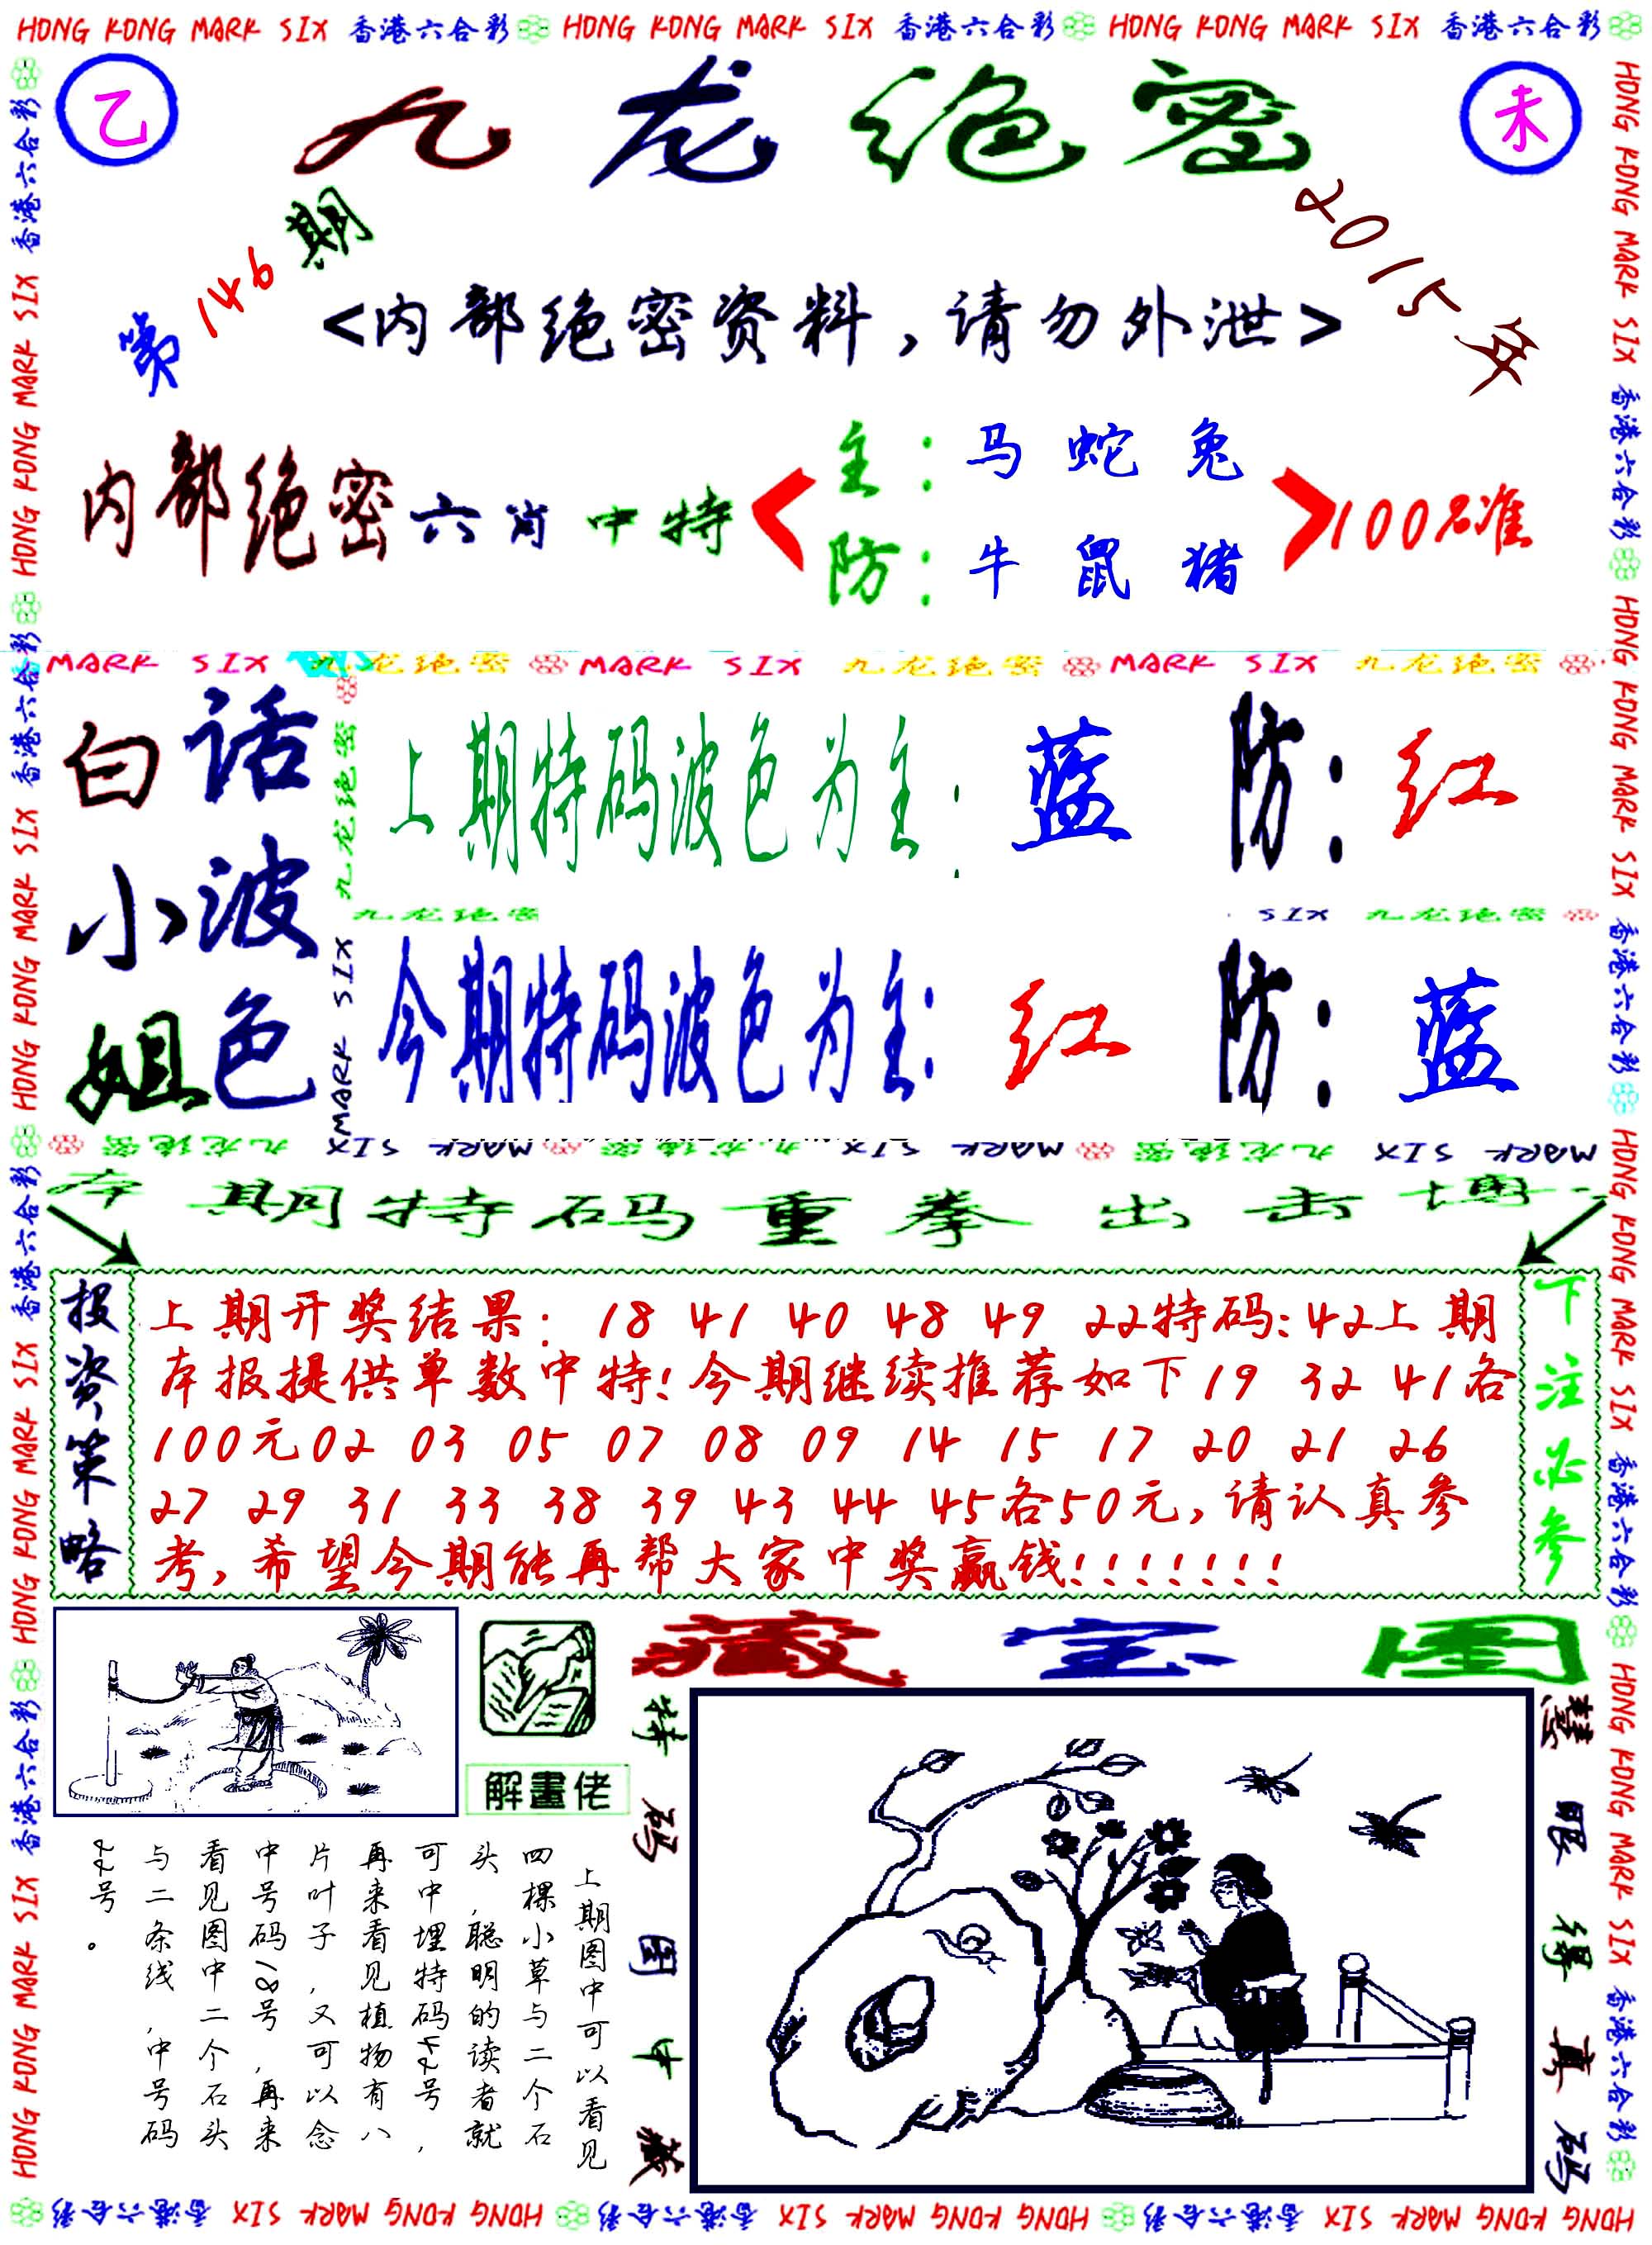 HONG KONG MARK SIX 香港六合彩 HONG KONG MARK SIX 香港六合彩 HONG KONG MARK SIX 香港六合彩
乙 九龙绝密 未
第146期 2015年
<内部绝密资料，请勿外泄>
主：马 蛇 兔
内部绝密六肖中特 100%准
防：牛 鼠 猪
MARK SIX 九龙绝密 MARK SIX 九龙绝密 MARK SIX 九龙绝密
白话
小波
姐色
九龙绝密
MARK SIX
上期特码波色为主：蓝 防：红
九龙绝密 SIX 九龙绝密
今期特码波色为主：红 防：蓝
MARK SIX 九龙绝密 MARK SIX 九龙绝密 MARK SIX 九龙绝密 MARK SIX 九龙绝密
本期特码重拳出击博
投资策略
上期开奖结果：18 41 40 48 49 22特码：42上期
本报提供单数中特！今期继续推荐如下19 32 41各
100元02 03 05 07 08 09 14 15 17 20 21 26
27 29 31 33 38 39 43 44 45各50元，请认真参
考，希望今期能再帮大家中奖赢钱！！！！！！！
下注必参
解畫佬
藏宝图
特码图中藏
慧眼得真码
上期图中可以看见
四棵小草与二个石
头，聪明的读者就
可中埋特码42号，
再来看见植物有八
片叶子，又可以念
中号码18号，再来
看见图中二个石头
与二条线，中号码
22号。
HONG KONG MARK SIX 香港六合彩 HONG KONG MARK SIX 香港六合彩 HONG KONG MARK SIX 香港六合彩 HONG KONG MARK SIX 香港六合彩
HONG KONG MARK SIX 香港六合彩 HONG KONG MARK SIX 香港六合彩 HONG KONG MARK SIX 香港六合彩 HONG KONG MARK SIX 香港六合彩
HONG KONG MARK SIX 香港六合彩 HONG KONG MARK SIX 香港六合彩 HONG KONG MARK SIX 香港六合彩